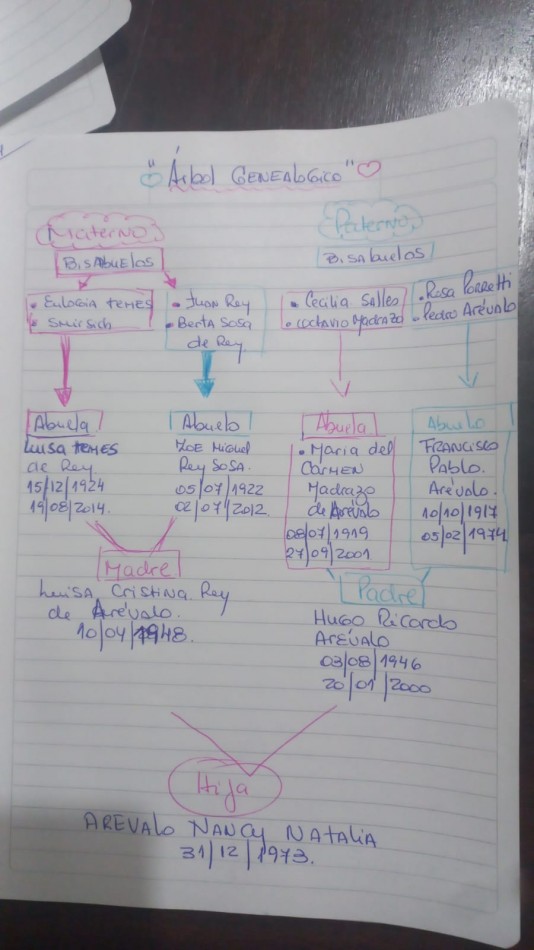 "Árbol GENEALOGICO"
MATERNO
BisABuelos
• Eulogia TEMES
• Smirsich
• JUAN Rey
• Berta Sosa
de Rey
Paterno
Bisabuelos
• Cecilia Salles
• Octavio Madrazo
• Rosa Porretti
• Pedro Arévalo
Abuela
Luisa TEMES
de Rey
15/12/1924
19/08/2014.
Abuelo
ZOE Miguel
Rey SOSA.
05/07/1922
02/07/2012.
Abuela
• Maria del
CARMEN
Madrazo
de Arévalo
08/07/1919
27/09/2001
Abuelo
FRANCISCO
Pablo.
Arévalo.
10/10/1917
05/02/1974
Madre
Luisa Cristina Rey
de Arévalo.
10/04/1948.
Padre
Hugo Ricardo
ARÉVALO
03/08/1946
20/01/2000
Hija
AREVALO NANCY NATALIA
31/12/1973.